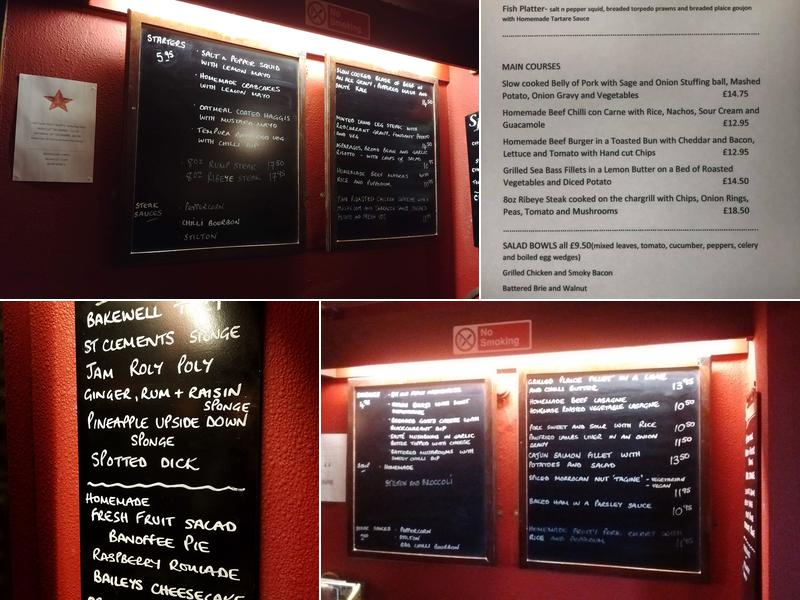 No
Smoking
STARTERS
5.95
· SALT N PEPPER SQUID
WITH LEMON MAYO
· HOMEMADE CRABCAKES
WITH LEMON MAYO
· OATMEAL COATED HAGGIS
WITH MUSTARD MAYO
· TEMPURA BATTERED VEG
WITH CHILLI DIP
· 8OZ RUMP STEAK 17.50
8OZ RIBEYE STEAK 17.95
STEAK
SAUCES
· PEPPERCORN
CHILLI BOURBON
STILTON
SLOW COOKED BLADE OF BEEF IN
AN ALE GRAVY, PEPPERED
KALE
MINTED LAMB LEG STEAK WITH
REDCURRANT GRAVY, FONDANT POTATO
AND VEG
ASPARAGUS, BROAD BEAN AND GARLIC
RISOTTO - WITH SALAD
HOMEMADE BEEF MADRAS WITH
RICE AND POPPADOM
PAN ROASTED CHICKEN SUPREME WITH A
MUSHROOM AND SAUCE
Fish Platter- salt n pepper squid, breaded torpedo prawns and breaded plaice goujon
with Homemade Tartare Sauce
MAIN COURSES
Slow cooked Belly of Pork with Sage and Onion Stuffing ball, Mashed
Potato, Onion Gravy and Vegetables £14.75
Homemade Beef Chilli con Carne with Rice, Nachos, Sour Cream and
Guacamole £12.95
Homemade Beef Burger in a Toasted Bun with Cheddar and Bacon,
Lettuce and Tomato with Hand cut Chips £12.95
Grilled Sea Bass Fillets in a Lemon Butter on a Bed of Roasted
Vegetables and Diced Potato £14.50
8oz Ribeye Steak cooked on the chargrill with Chips, Onion Rings,
Peas, Tomato and Mushrooms £18.50
SALAD BOWLS all £9.50(mixed leaves, tomato, cucumber, peppers, celery
and boiled egg wedges)
Grilled Chicken and Smoky Bacon
Battered Brie and Walnut
BAKEWELL
ST CLEMENTS SPONGE
JAM ROLY POLY
GINGER, RUM + RAISIN
SPONGE
PINEAPPLE UPSIDE DOWN
SPONGE
SPOTTED DICK
HOMEMADE
FRESH FRUIT SALAD
BANOFFEE PIE
RASPBERRY ROULADE
BAILEYS CHEESECAKE
No
Smoking
· BREADED GOATS CHEESE WITH
BLACKCURRANT DIP
· SAUTÉ MUSHROOMS IN GARLIC
BUTTER TOPPED WITH CHEESE
· BATTERED MUSHROOMS WITH
SWEET CHILLI DIP
SOUP · HOMEMADE
STILTON AND BROCCOLI
STEAK SAUCES - PEPPERCORN
· STILTON
CHILLI BOURBON
GRILLED PLAICE FILLET IN A LIME
AND CHILLI BUTTER 13.95
HOMEMADE BEEF LASAGNE
HOMEMADE ROASTED VEGETABLE LASAGNE 10.50
PORK SWEET AND SOUR WITH RICE 10.50
PANFRIED LAMBS LIVER IN AN ONION
GRAVY 11.50
CAJUN SALMON FILLET WITH
POTATOES AND SALAD 13.50
SPICED MOROCCAN NUT 'TAGINE' - VEGETARIAN
- VEGAN
11.95
BAKED HAM IN A PARSLEY SAUCE
10.95
HOMEMADE FRUITY PORK CURRY WITH
RICE AND POPPADOM 11.95